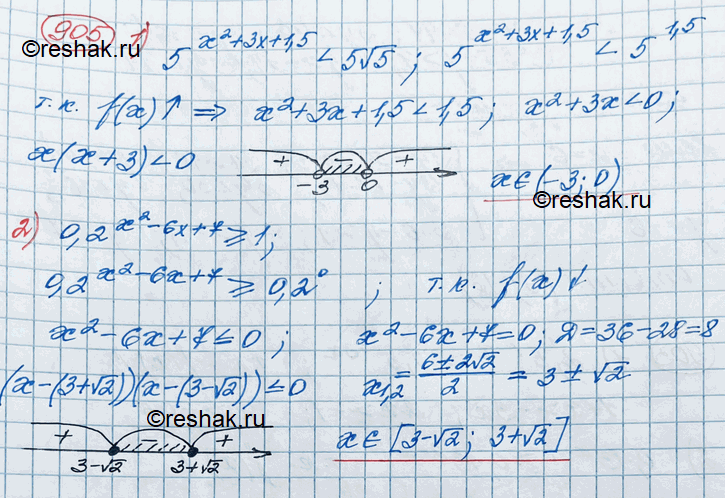 905 1) 5^(x²+3x+1,5) < 5√5 ; 5^(x²+3x+1,5) < 5^(1,5)
©reshak.ru
©reshak.ru
т.к. f(x)↑ ⇒ x²+3x+1,5<1,5; x²+3x<0;
x(x+3)<0 + − + -3 0 x∈(-3; 0)
©reshak.ru
2) 0,2^(x²-6x+7) ≥ 1;
0,2^(x²-6x+7) ≥ 0,2⁰ ; т.к. f(x)↓
x²-6x+7≤0 ; x²-6x+7=0; D=36-28=8
(x-(3+√2))(x-(3-√2))≤0 x₁,₂ = (6±2√2)/2 = 3±√2
©reshak.ru
+ − + 3-√2 3+√2 x∈[3-√2; 3+√2]